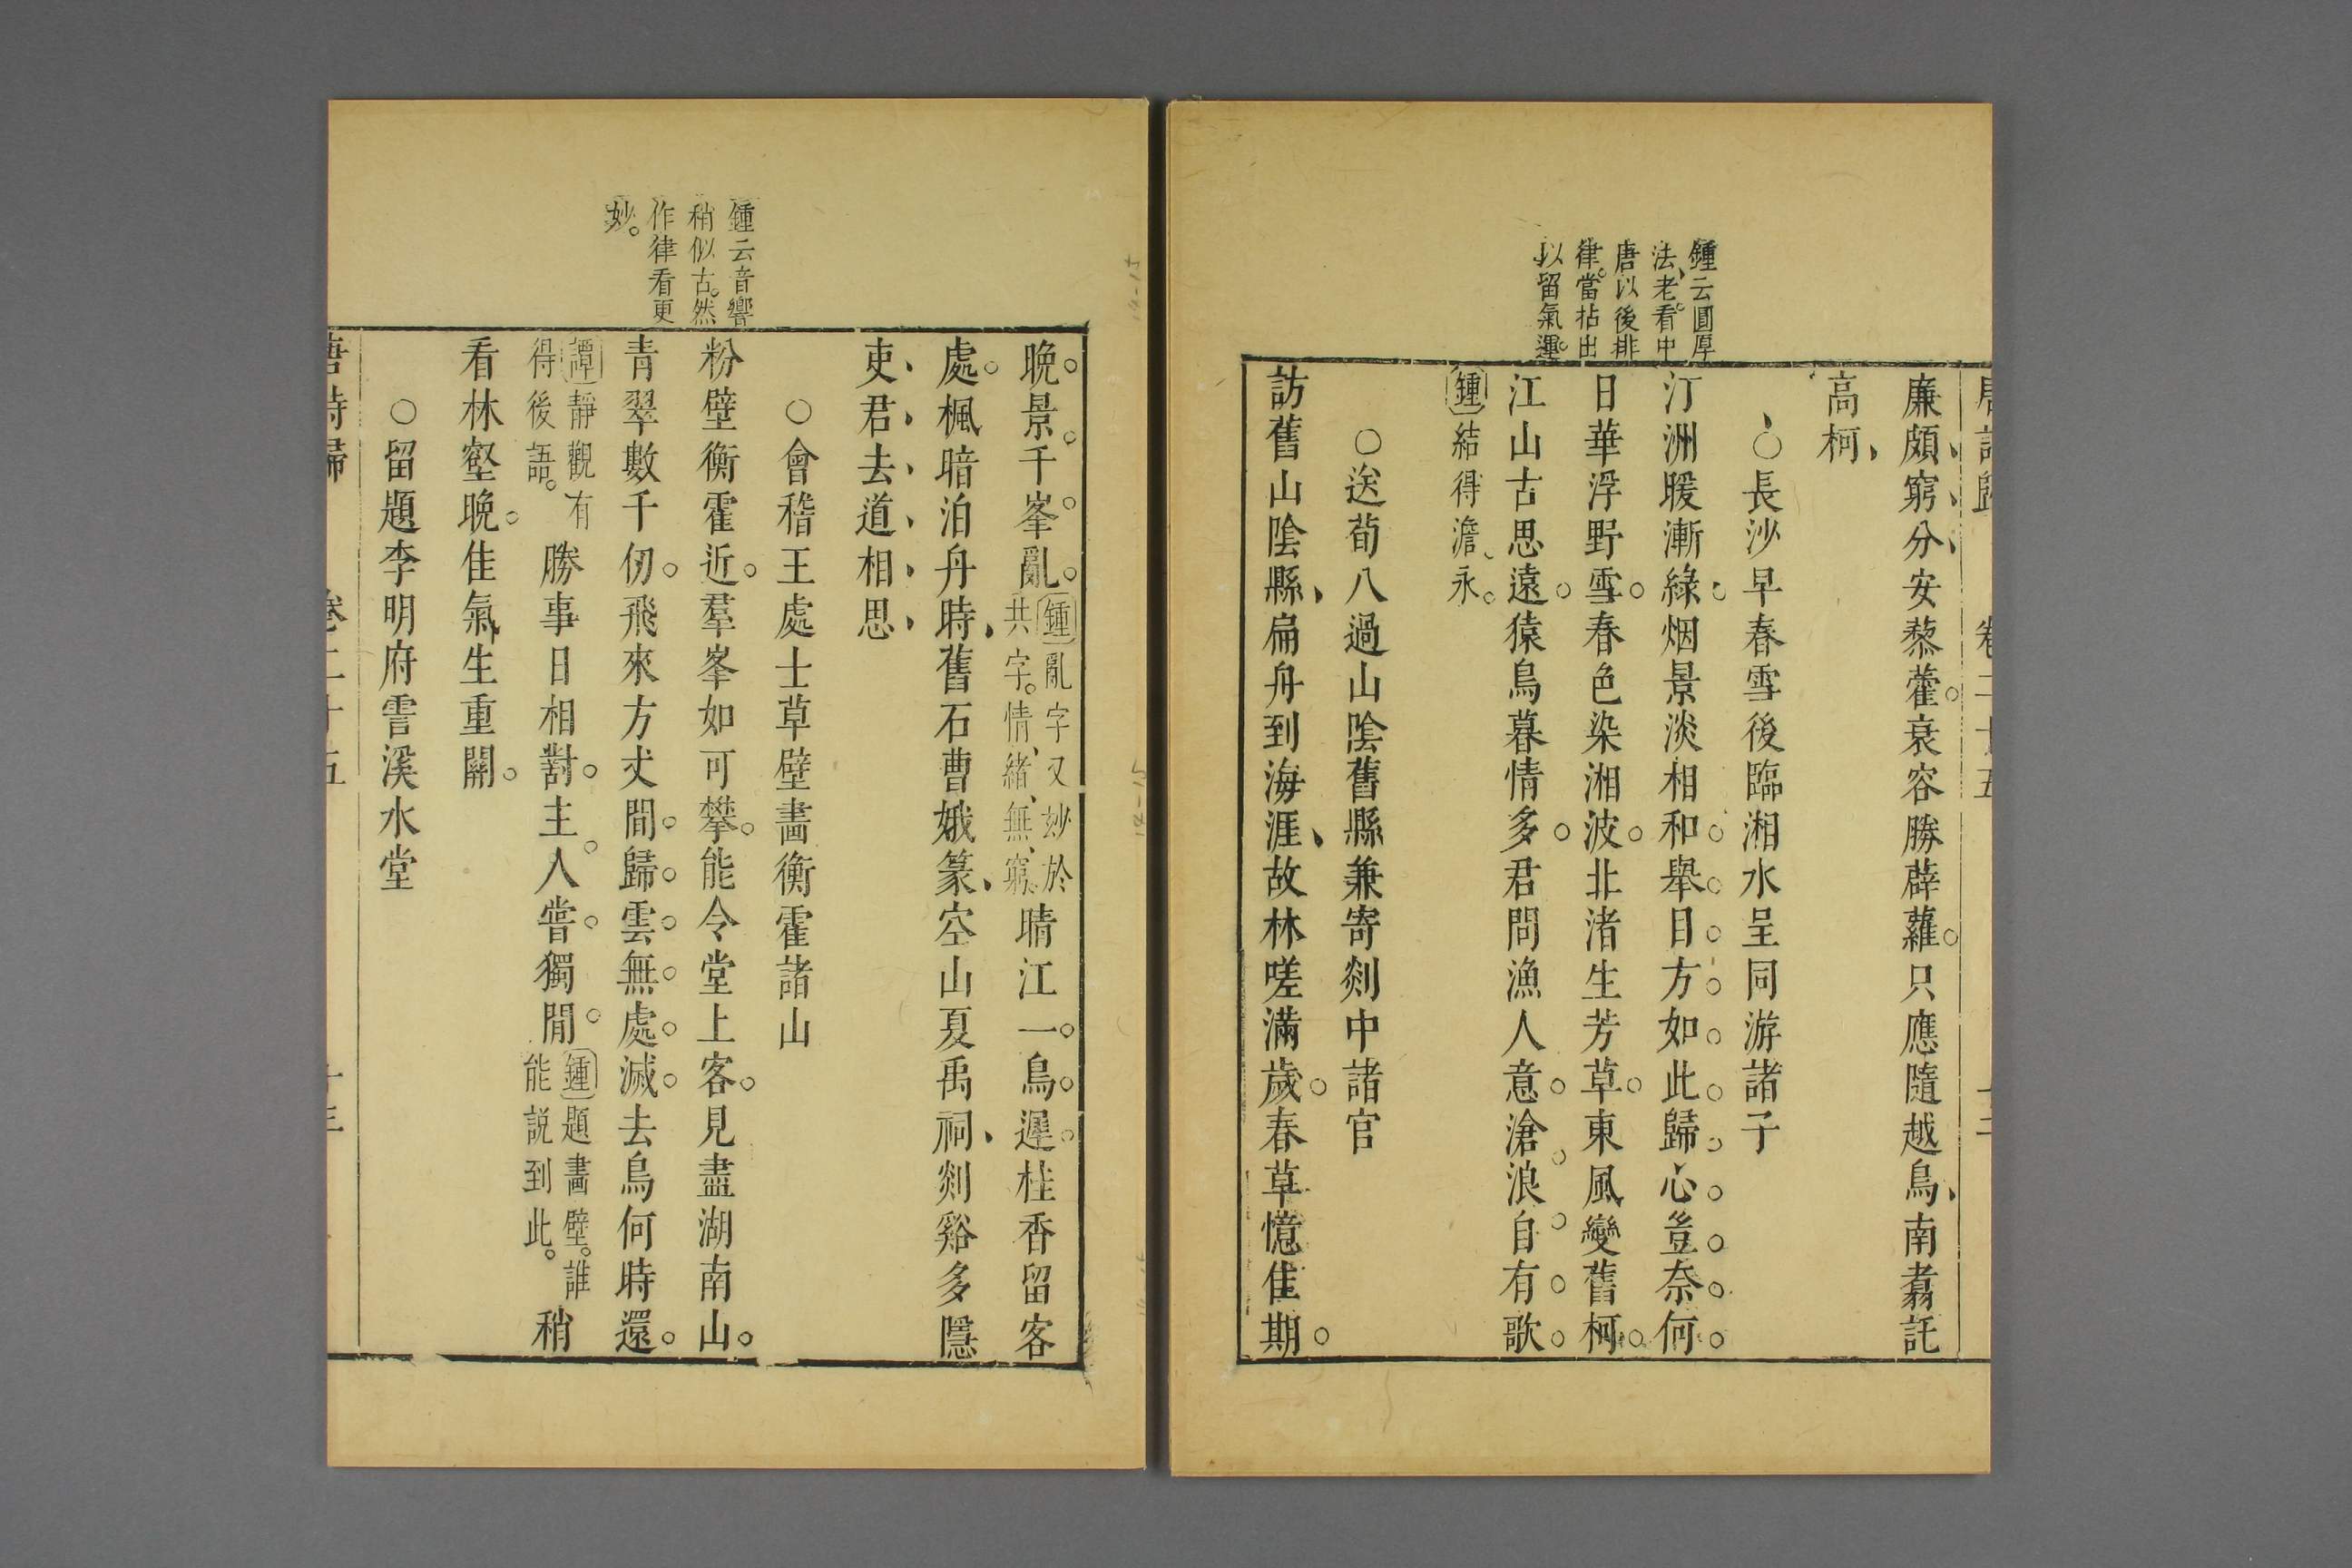 鍾云圓厚
法老。看中
唐以後排
律。當拈出
以留氣運。
唐詩歸 卷二十五
廉頗窮分安藜藿。衰容勝薜蘿。只應隨越鳥、南翥託
高柯、
○長沙早春雪後臨湘水呈同游諸子
汀洲暖漸綠烟景淡相和舉目方如此歸心豈奈何
日華浮野雪春色染湘波北渚生芳草東風變舊柯
江山古思遠猿鳥暮情多君問漁人意滄浪自有歌
鍾結得澹、永。
○送荀八過山陰舊縣兼寄剡中諸官
訪舊山陰縣扁舟到海涯故林嗟滿歲春草憶佳期
鍾云音響
稍似古。然
作律看更
妙。
晩景千峯亂鍾亂字又妙於
共字。情、緒、無、窮。晴江一鳥遲桂香留客
處楓暗泊舟時舊石曹娥篆空山夏禹祠剡谿多隱
吏君去道相思
○會稽王處士草壁畵衡霍諸山
粉壁衡霍近羣峯如可攀能令堂上客見盡湖南山
青翠數千仞飛來方丈間歸雲無處滅去鳥何時還
譚靜觀有
得後語。勝事日相對主人嘗獨閒鍾題畵壁。誰
能説到此。稍
看林壑晩佳氣生重關
○留題李明府霅溪水堂
唐詩歸 卷二十五 十三